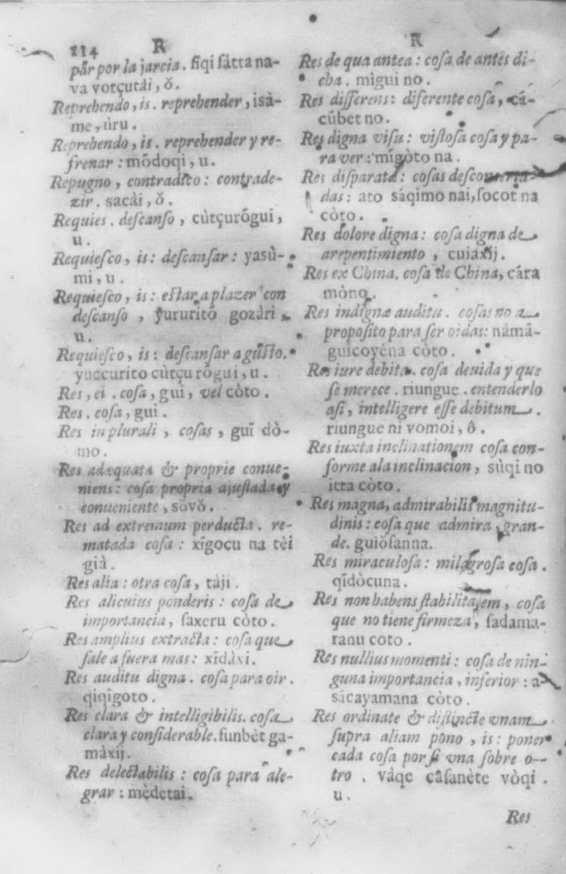 114 R
par por la jarcia. fiqi sàtta na-
va vorçutài, ǒ.
Reprehendo, is. reprehender, isà-
me, ùru.
Reprehendo, is. reprehender y re-
frenar: mõdoqi, u.
Repugno, contradico: contrade-
zir. sacài, ǒ.
Requies. descanso, cùtçurõgui,
u.
Requiesco, is: descansar: yasù-
mi, u.
Requiesco, is: estar a plazer con
descanso, yururitò gozàri
u.
Requiesco, is: descansar a gusto.
yuccurito cùtçu rǒgui, u.
Res, ei. cosa, gui, vel còto.
Res. cosa, gui.
Res in plurali, cosas, guì dò-
mo.
Res adæquata & proprie conue-
niens: cosa propria ajustada y
conueniente, sǒvǒ.
Res ad extremum perducta. re-
matada cosa: xĩgocu na tèi
già.
Res alia: otra cosa, tàji.
Res alicuius ponderis: cosa de
importancia, saxeru còto.
Res amplius extracta: cosa que
sale a fuera mas: xĩdàxi.
Res auditu digna. cosa para oir.
qiqigoto.
Res clara & intelligibilis. cosa
clara y considerable. funbèt ga-
màxij.
Res delectabilis: cosa para ale-
grar: mèdetai.
R
Res de qua antea: cosa de antes di-
cha. migui no.
Res differens: diferente cosa, cá-
cùbet no.
Res digna visu: vistosa cosa y pa-
ra ver: migòto na.
Res disparata: cosas desconcerta-
das: ato sáqimo nai, socot na
còto.
Res dolore digna: cosa digna de
arrepentimiento, cuiaxij.
Res ex China. cosa de China, cára
mòno.
Res indignæ auditu. cosas no a
proposito para ser oidas: nàmã-
guicoyèna còto.
Res iure debita. cosa deuida y que
se merece. riungue. entenderlo
asi, intelligere esse debitum.
riungue ni vomoi, ô.
Res iuxta inclinationem cosa con-
forme ala inclinacion, sùqi no
itta còto.
Res magna, admirabilis magnitu-
dinis: cosa que admira, gran-
de. guiòsanna.
Res miraculosa: milagrosa cosa.
qĩdòcuna.
Res non habens stabilitatem, cosa
que no tiene firmeza, sadama-
ranu coto.
Res nullius momenti: cosa de nin-
guna importancia, inferior: a-
sàcayamana còto.
Res ordinate & distincte vnam
supra aliam pono, is: poner
cada cosa por si vna sobre o-
tro. vàqe cãsanète vòqi.
u.
Res